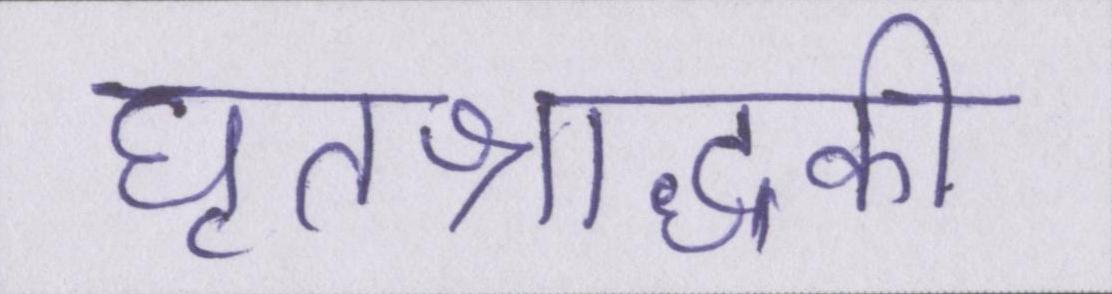 घृतश्राद्धकी